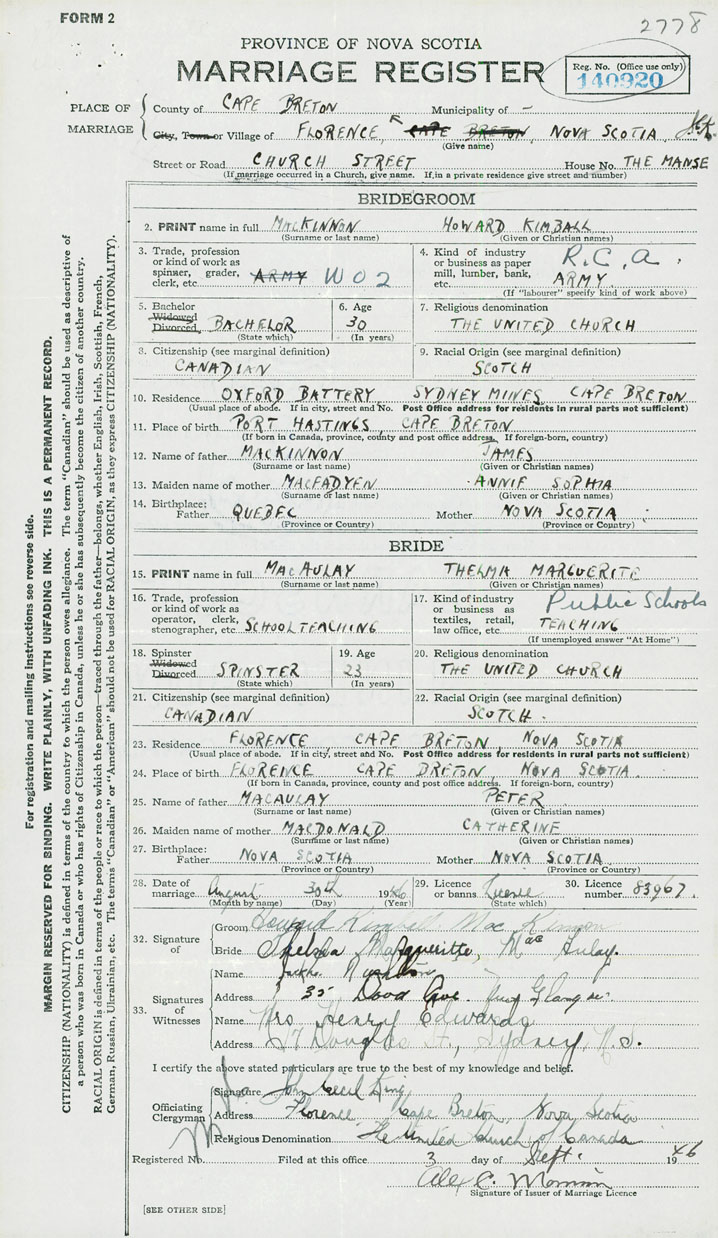 FORM 2
2778
PROVINCE OF NOVA SCOTIA
MARRIAGE REGISTER
Reg. No. (Office use only)
140920
PLACE OF MARRIAGE
County of CAPE BRETON Municipality of -
City, Town or Village of FLORENCE, CAPE BRETON, NOVA SCOTIA
(Give name)
Street or Road CHURCH STREET House No. THE MANSE
(If marriage occurred in a Church, give name. If in a private residence give street and number)
BRIDEGROOM
2. PRINT name in full MACKINNON HOWARD KIMBALL
(Surname or last name) (Given or Christian names)
3. Trade, profession or kind of work as spinner, grader, clerk, etc. ARMY W O 2
4. Kind of industry or business as paper mill, lumber, bank, etc. R.C.A. ARMY
(If "labourer" specify kind of work above)
5. Bachelor Widowed Divorced BACHELOR
(State which)
6. Age 30
(In years)
7. Religious denomination
THE UNITED CHURCH
8. Citizenship (see marginal definition)
CANADIAN
9. Racial Origin (see marginal definition)
SCOTCH
10. Residence OXFORD BATTERY SYDNEY MINES CAPE BRETON
(Usual place of abode. If in city, street and No. Post Office address for residents in rural parts not sufficient)
11. Place of birth PORT HASTINGS, CAPE BRETON
(If born in Canada, province, county and post office address. If foreign-born, country)
12. Name of father MACKINNON JAMES
(Surname or last name) (Given or Christian names)
13. Maiden name of mother MACFADYEN ANNIE SOPHIA
(Surname or last name) (Given or Christian names)
14. Birthplace: Father QUEBEC Mother NOVA SCOTIA
(Province or Country) (Province or Country)
BRIDE
15. PRINT name in full MACAULAY THELMA MARGUERITE
(Surname or last name) (Given or Christian names)
16. Trade, profession or kind of work as operator, clerk, stenographer, etc. SCHOOL TEACHING
17. Kind of industry or business as textiles, retail, law office, etc. Public Schools TEACHING
(If unemployed answer "At Home")
18. Spinster Widowed Divorced SPINSTER
(State which)
19. Age 23
(In years)
20. Religious denomination
THE UNITED CHURCH
21. Citizenship (see marginal definition)
CANADIAN
22. Racial Origin (see marginal definition)
SCOTCH.
23. Residence FLORENCE CAPE BRETON, NOVA SCOTIA
(Usual place of abode. If in city, street and No. Post Office address for residents in rural parts not sufficient)
24. Place of birth FLORENCE CAPE BRETON, NOVA SCOTIA
(If born in Canada, province, county and post office address. If foreign-born, country)
25. Name of father MACAULAY PETER
(Surname or last name) (Given or Christian names)
26. Maiden name of mother MACDONALD CATHERINE
(Surname or last name) (Given or Christian names)
27. Birthplace: Father NOVA SCOTIA Mother NOVA SCOTIA
(Province or Country) (Province or Country)
28. Date of marriage August 30th 1946
(Month by name) (Day) (Year)
29. Licence or banns License
(State which)
30. Licence number 83967.
32. Signature of
Groom Howard Kimball MacKinnon
Bride Thelma Marguerite MacAulay.
33. Signatures of Witnesses
Name
Address 35
Name Mrs. Henry Edwards
Address 17 Douglas St., Sydney, N.S.
I certify the above stated particulars are true to the best of my knowledge and belief.
Officiating Clergyman
Signature John Cecil King
Address Florence Cape Breton, Nova Scotia
Religious Denomination The United Church of Canada
Registered No. Filed at this office 3 day of Sept. 1946
Alex C. Morrison
Signature of Issuer of Marriage Licence
[SEE OTHER SIDE]
For registration and mailing instructions see reverse side.
MARGIN RESERVED FOR BINDING. WRITE PLAINLY, WITH UNFADING INK. THIS IS A PERMANENT RECORD.
CITIZENSHIP (NATIONALITY) is defined in terms of the country to which the person owes allegiance. The term "Canadian" should be used as descriptive of
a person who was born in Canada or who has rights of Citizenship in Canada, unless he or she has subsequently become the citizen of another country.
RACIAL ORIGIN is defined in terms of the people or race to which the person—traced through the father—belongs, whether English, Irish, Scottish, French,
German, Russian, Ukrainian, etc. The terms "Canadian" or "American" should not be used for RACIAL ORIGIN, as they express CITIZENSHIP (NATIONALITY).